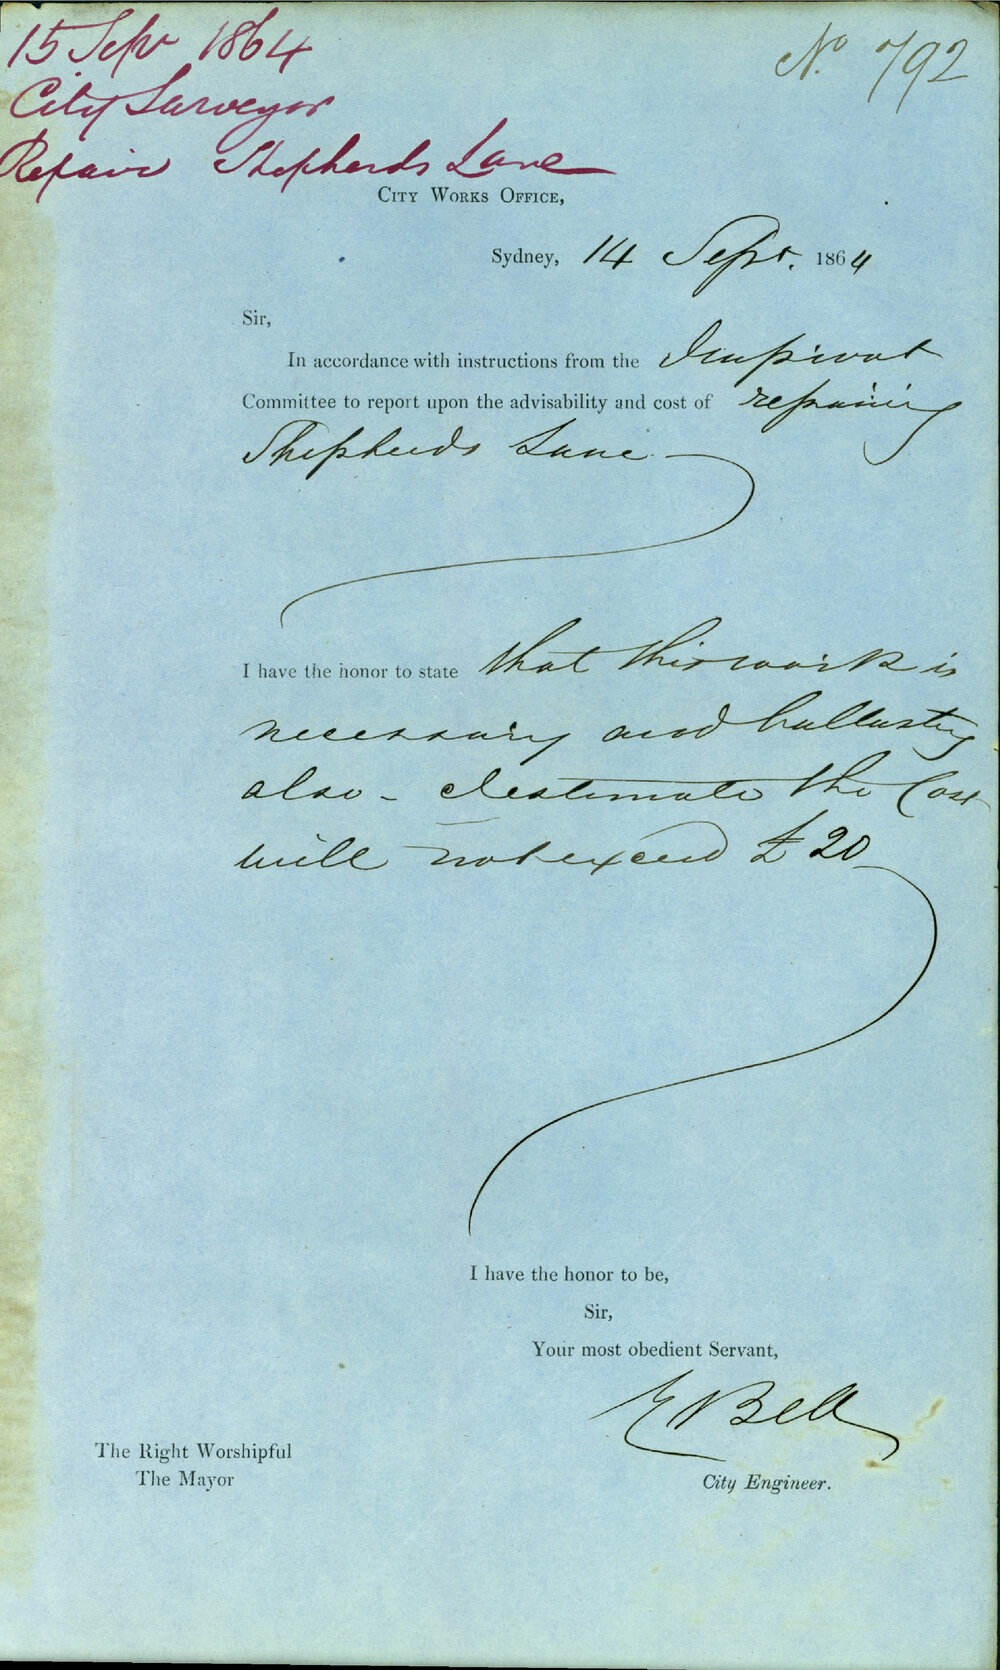 15 Sepr 1864
No. 792
City Surveyor
Repair Shepherds Lane
CITY WORKS OFFICE,
Sydney, 14 Sept. 1864
Sir,
In accordance with instructions from the Improvmt
Committee to report upon the advisability and cost of repairing
Shepherds Lane
I have the honor to state that this work is
necessary and ballasting
also - I estimate the Cost
will not exceed £20
I have the honor to be,
Sir,
Your most obedient Servant,
E Bell
The Right Worshipful
The Mayor
City Engineer.